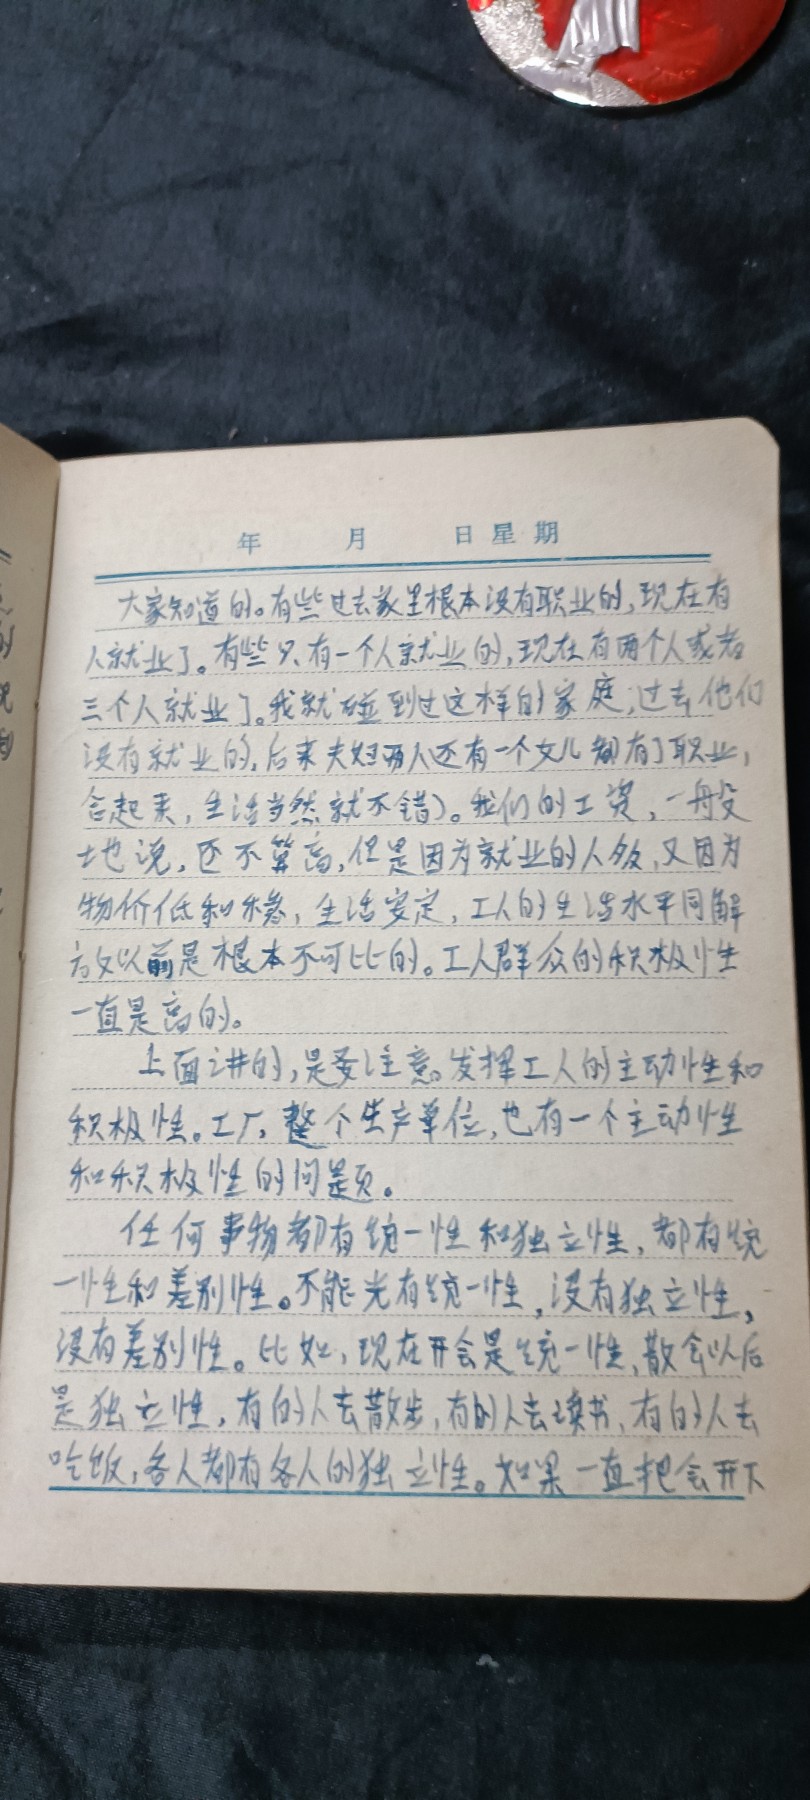 年 月 日 星 期
大家知道的。有些过去家里根本没有职业的,现在有
人就业了。有些只有一个人就业的,现在有两个人或者
三个人就业了。我就碰到过这样的家庭,过去他们
没有就业的,后来夫妇两人还有一个女儿都有了职业,
合起来,生活当然就不错)。我们的工资,一般
地说,还不算高,但是因为就业的人多,又因为
物价低和稳,生活安定,工人的生活水平同解
放以前是根本不可比的。工人群众的积极性
一直是高的。
上面讲的,是要注意。发挥工人的主动性和
积极性。工厂,整个生产单位,也有一个主动性
和积极性的问题。
任何事物都有统一性和独立性,都有统
一性和差别性。不能光有统一性,没有独立性,
没有差别性。比如,现在开会是统一性,散会以后
是独立性,有的人去散步,有的人去读书,有的人去
吃饭,各人都有各人的独立性。如果一直把会开下